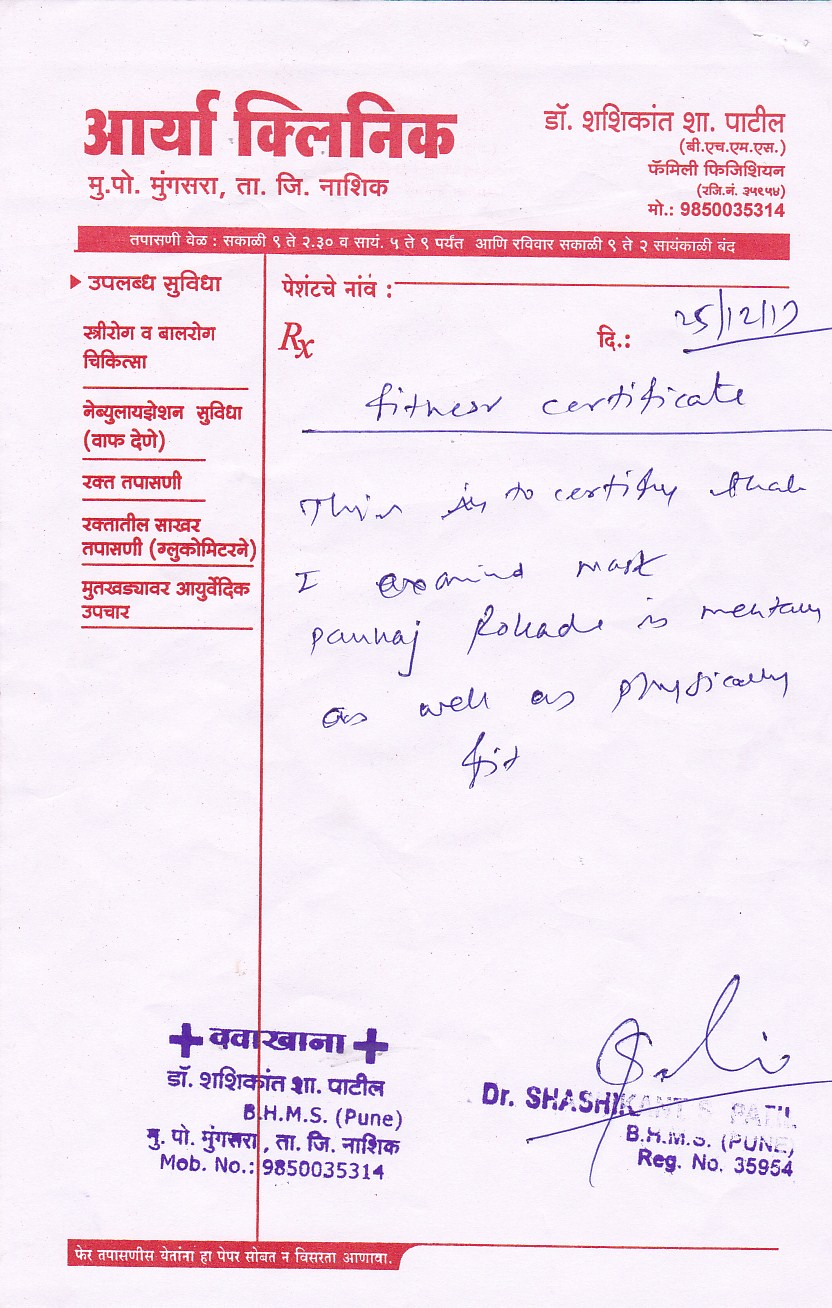 आर्या क्लिनिक
मु.पो. मुंगसरा, ता. जि. नाशिक
डॉ. शशिकांत शा. पाटील
(बी.एच.एम.एस.)
फॅमिली फिजिशियन
(रजि.नं. ३५९५४)
मो.: 9850035314
तपासणी वेळ : सकाळी ९ ते २.३० व सायं. ५ ते ९ पर्यंत आणि रविवार सकाळी ९ ते २ सायंकाळी बंद
उपलब्ध सुविधा
स्त्रीरोग व बालरोग
चिकित्सा
नेब्युलायझेशन सुविधा
(वाफ देणे)
रक्त तपासणी
रक्तातील साखर
तपासणी (ग्लुकोमिटरने)
मुतखड्यावर आयुर्वेदिक
उपचार
पेशंटचे नांव :
Rx
दि.: 25/12/17
fitness certificate
This is to certify that
I examined mast
Pankaj Rokade is mentaly
as well as physically
fit
दवाखाना
डॉ. शशिकांत शा. पाटील
B.H.M.S. (Pune)
मु. पो. मुंगसरा, ता. जि. नाशिक
Mob. No.: 9850035314
Dr. SHASHIKANT S. PATIL
B.H.M.S. (PUNE)
Reg. No. 35954
फेर तपासणीस येतांना हा पेपर सोबत न विसरता आणावा.